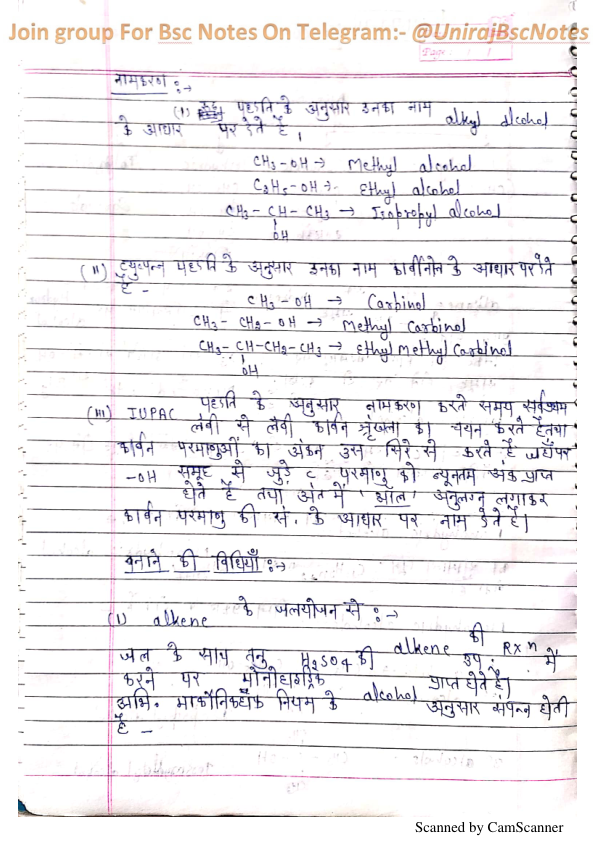 Join group For Bsc Notes On Telegram:- @UnirajBscNotes
Page
नामकरण :→
(I) रूढ़ पद्धति के अनुसार इनका नाम alkyl alcohol
के आधार पर देते हैं।
CH3-OH → Methyl alcohol
C2H5-OH → Ethyl alcohol
CH3-CH-CH3 → Isopropyl alcohol
OH
(II) व्युत्पन्न पद्धति के अनुसार इनका नाम कार्बीनोल के आधार पर देते
हैं -
CH3-OH → Carbinol
CH3-CH2-OH → Methyl Carbinol
CH3-CH-CH2-CH3 → Ethyl Methyl Carbinol
OH
(III) IUPAC पद्धति के अनुसार नामकरण करते समय सर्वप्रथम
लंबी से लंबी कार्बन श्रृंखला का चयन करते हैं तथा
कार्बन परमाणुओं का अंकन उस सिरे से करते हैं जहाँ पर
-OH समूह से जुड़े C परमाणु को न्यूनतम अंक प्राप्त
होते हैं तथा अंत में 'ऑल' अनुलग्न लगाकर
कार्बन परमाणु की सं. के आधार पर नाम देते हैं।
बनाने की विधियाँ :→
(I) alkene के जलयोजन से :→
जल के साथ तनु H2SO4 की उप. में alkene की Rxn
करने पर मोनोहाइड्रिक alcohol प्राप्त होते हैं।
अभि. मार्कोनिकॉफ नियम के अनुसार संपन्न होती
है -
Scanned by CamScanner